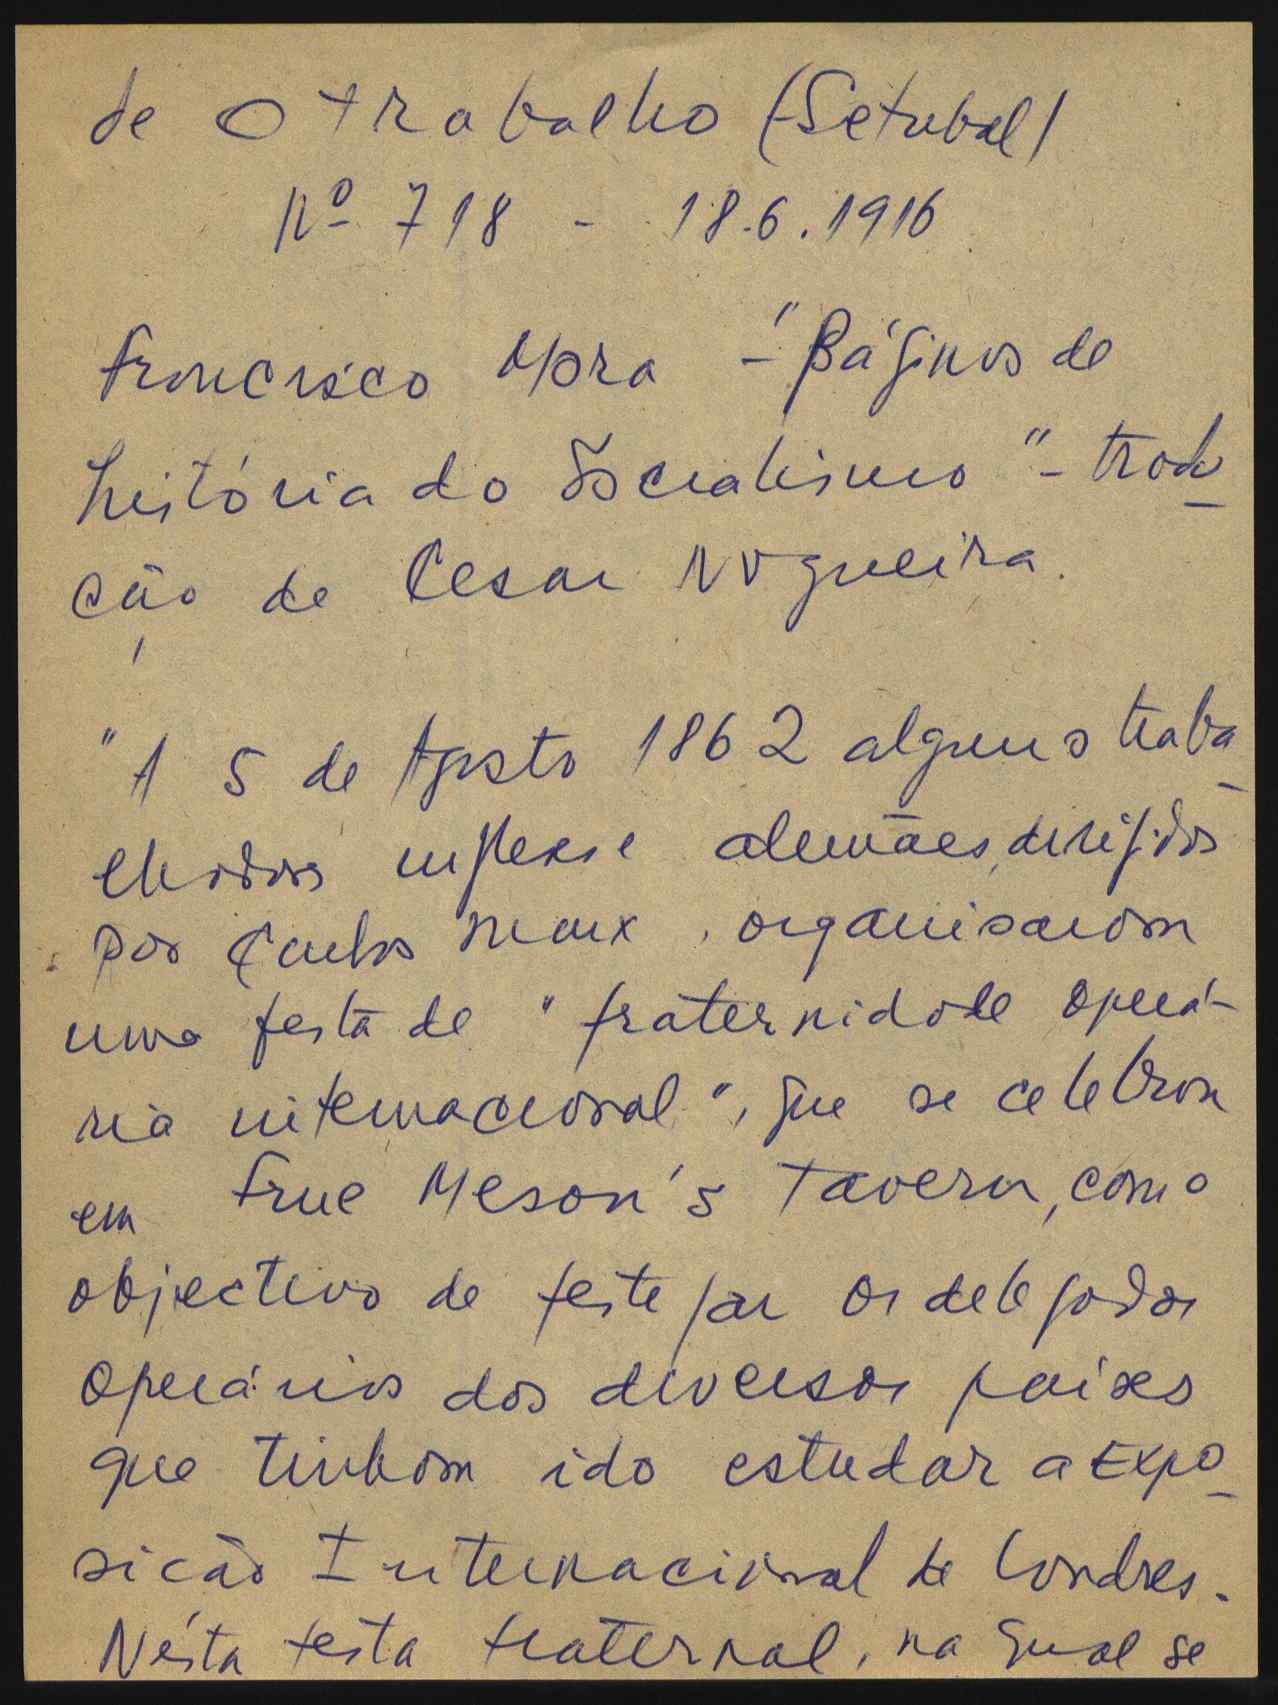 de O trabalho (Setubal)
Nº 718 - 18.6.1916
Francisco Mora - "Páginas de
história do Socialismo" - tradu
ção de Cesar Nogueira.
"A 5 de Agosto 1862 alguns traba
lhadores ingleses e alemães, dirigidos
por Carlos Marx, organisaram
uma festa de "fraternidade operá-
ria internacional", que se celebrou
em Frue Meson's Tavern, com o
objectivo de festejar os delegados
operários dos diversos países
que tinham ido estudar a Expo
sicão Internacional de Londres.
Nésta festa fraternal, na qual se